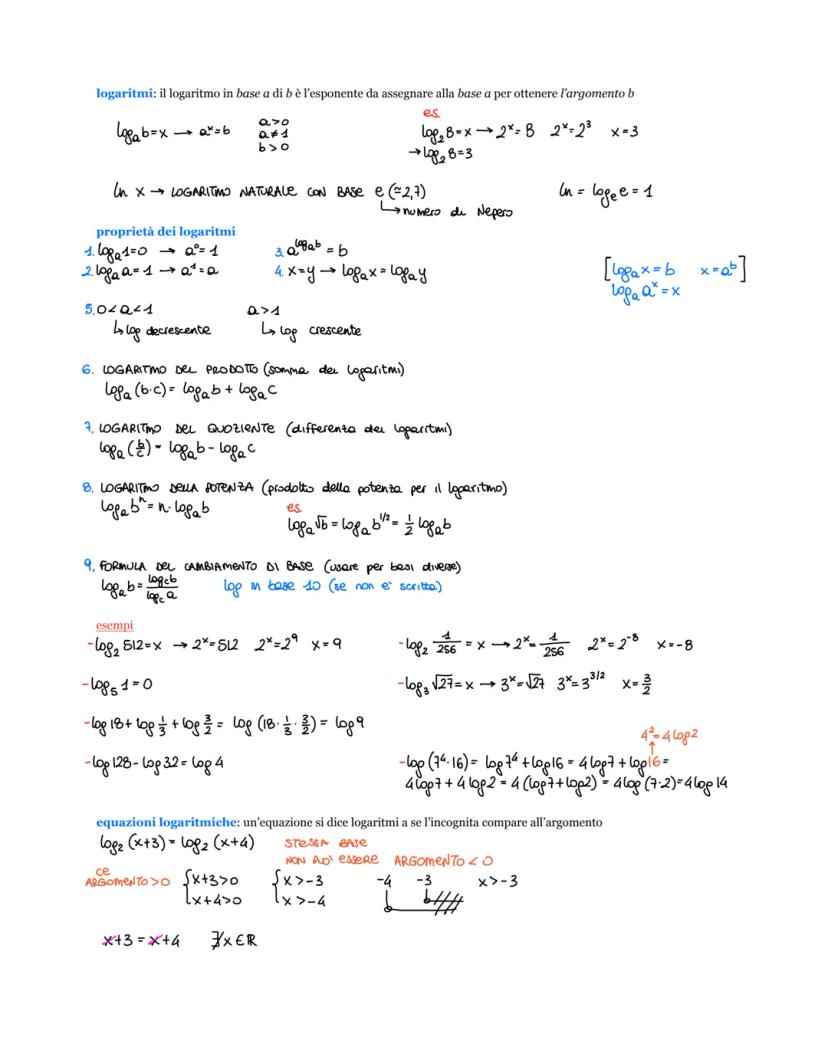 logaritmi: il logaritmo in base a di b è l'esponente da assegnare alla base a per ottenere l'argomento b
logₐb=x → aˣ=b a>0 a≠1 b>0
es.
log₂8=x → 2ˣ=8 2ˣ=2³ x=3
→ log₂8=3
ln x → LOGARITMO NATURALE CON BASE e (≃2,7) ln = logₑe = 1
↳ numero di Nepero
proprietà dei logaritmi
1. logₐ1=0 → a⁰=1 3. a^(logₐb) = b
2. logₐa=1 → a¹=a 4. x=y → logₐx=logₐy
[logₐx=b x=aᵇ]
logₐaˣ=x
5. 0<a<1 a>1
↳ log decrescente ↳ log crescente
6. LOGARITMO DEL PRODOTTO (somma dei logaritmi)
logₐ(b·c)= logₐb + logₐc
7. LOGARITMO DEL QUOZIENTE (differenza dei logaritmi)
logₐ(b/c) = logₐb - logₐc
8. LOGARITMO DELLA POTENZA (prodotto della potenza per il logaritmo)
logₐbⁿ = n·logₐb es.
logₐ√b = logₐb^(1/2) = 1/2 logₐb
9. FORMULA DEL CAMBIAMENTO DI BASE (usare per basi diverse)
logₐb = log꜀b/log꜀a log in base 10 (se non e' scritta)
esempi
-log₂512=x → 2ˣ=512 2ˣ=2⁹ x=9 -log₂ 1/256 = x → 2ˣ= 1/256 2ˣ=2⁻⁸ x=-8
-log₅1=0 -log₃√27=x → 3ˣ=√27 3ˣ=3^(3/2) x=3/2
-log18+log 1/3 + log 3/2 = log (18· 1/3 · 3/2) = log9
4²=4log2
↑
-log128-log32= log4 -log(7⁴·16)= log7⁴+log16= 4log7+log16=
4log7+4log2= 4(log7+log2) = 4log(7·2)=4log14
equazioni logaritmiche: un'equazione si dice logaritmi a se l'incognita compare all'argomento
log₂(x+3)=log₂(x+4) STESSA BASE
NON PUO' ESSERE ARGOMENTO<0
CE
ARGOMENTO>0 {x+3>0 {x>-3 -4 -3 x>-3
x+4>0 x>-4
x+3=x+4 ∄x∈ℝ